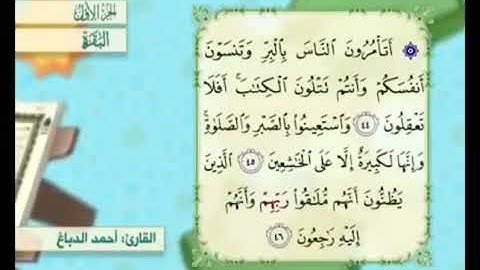 الجزء الأول
البقرة
۞ أَتَأْمُرُونَ النَّاسَ بِالْبِرِّ وَتَنسَوْنَ
أَنفُسَكُمْ وَأَنتُمْ تَتْلُونَ الْكِتَٰبَ ۚ أَفَلَا
تَعْقِلُونَ ٤٤ وَاسْتَعِينُوا بِالصَّبْرِ وَالصَّلَوٰةِ ۚ
وَإِنَّهَا لَكَبِيرَةٌ إِلَّا عَلَى الْخَٰشِعِينَ ٤٥ الَّذِينَ
يَظُنُّونَ أَنَّهُم مُّلَٰقُوا رَبِّهِمْ وَأَنَّهُمْ
إِلَيْهِ رَٰجِعُونَ ٤٦
القارئ: أحمد الدباغ